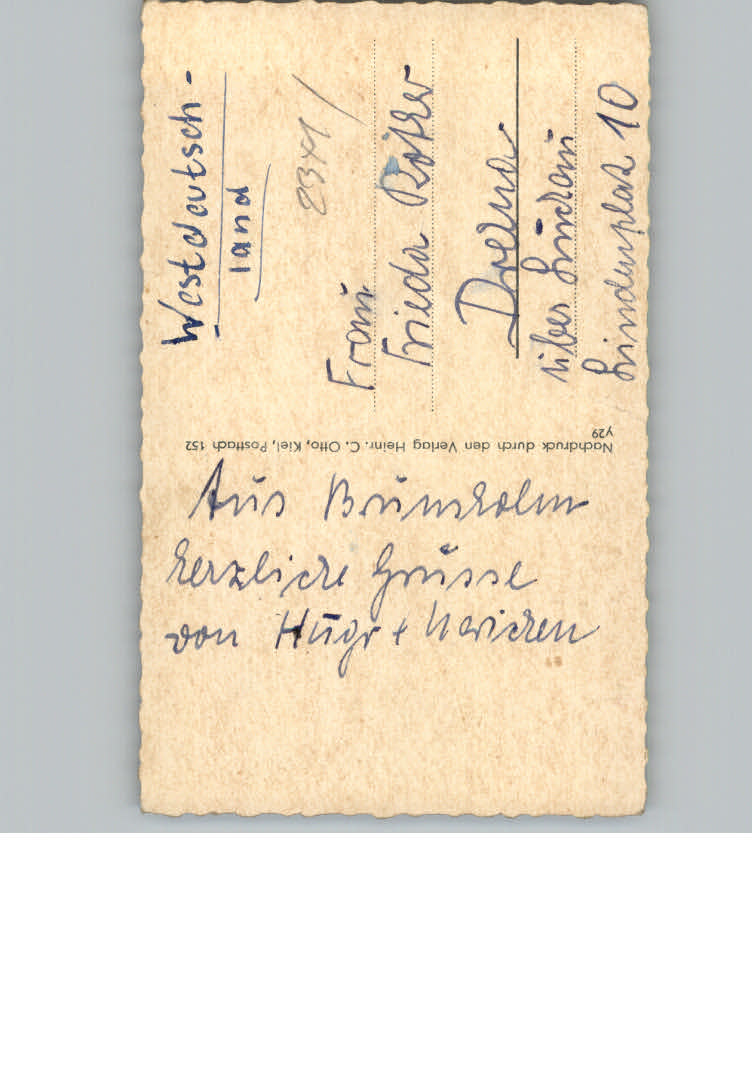 Westdeutsch-
land
2341 /
Frau
Frieda
Drehna
über Luckau
Lindenplatz 10
Nachdruck durch den Verlag Heinr. C. Otto, Kiel, Postfach 152
y29
Aus Brunsholm
herzliche Grüsse
von Hugo + Marichen